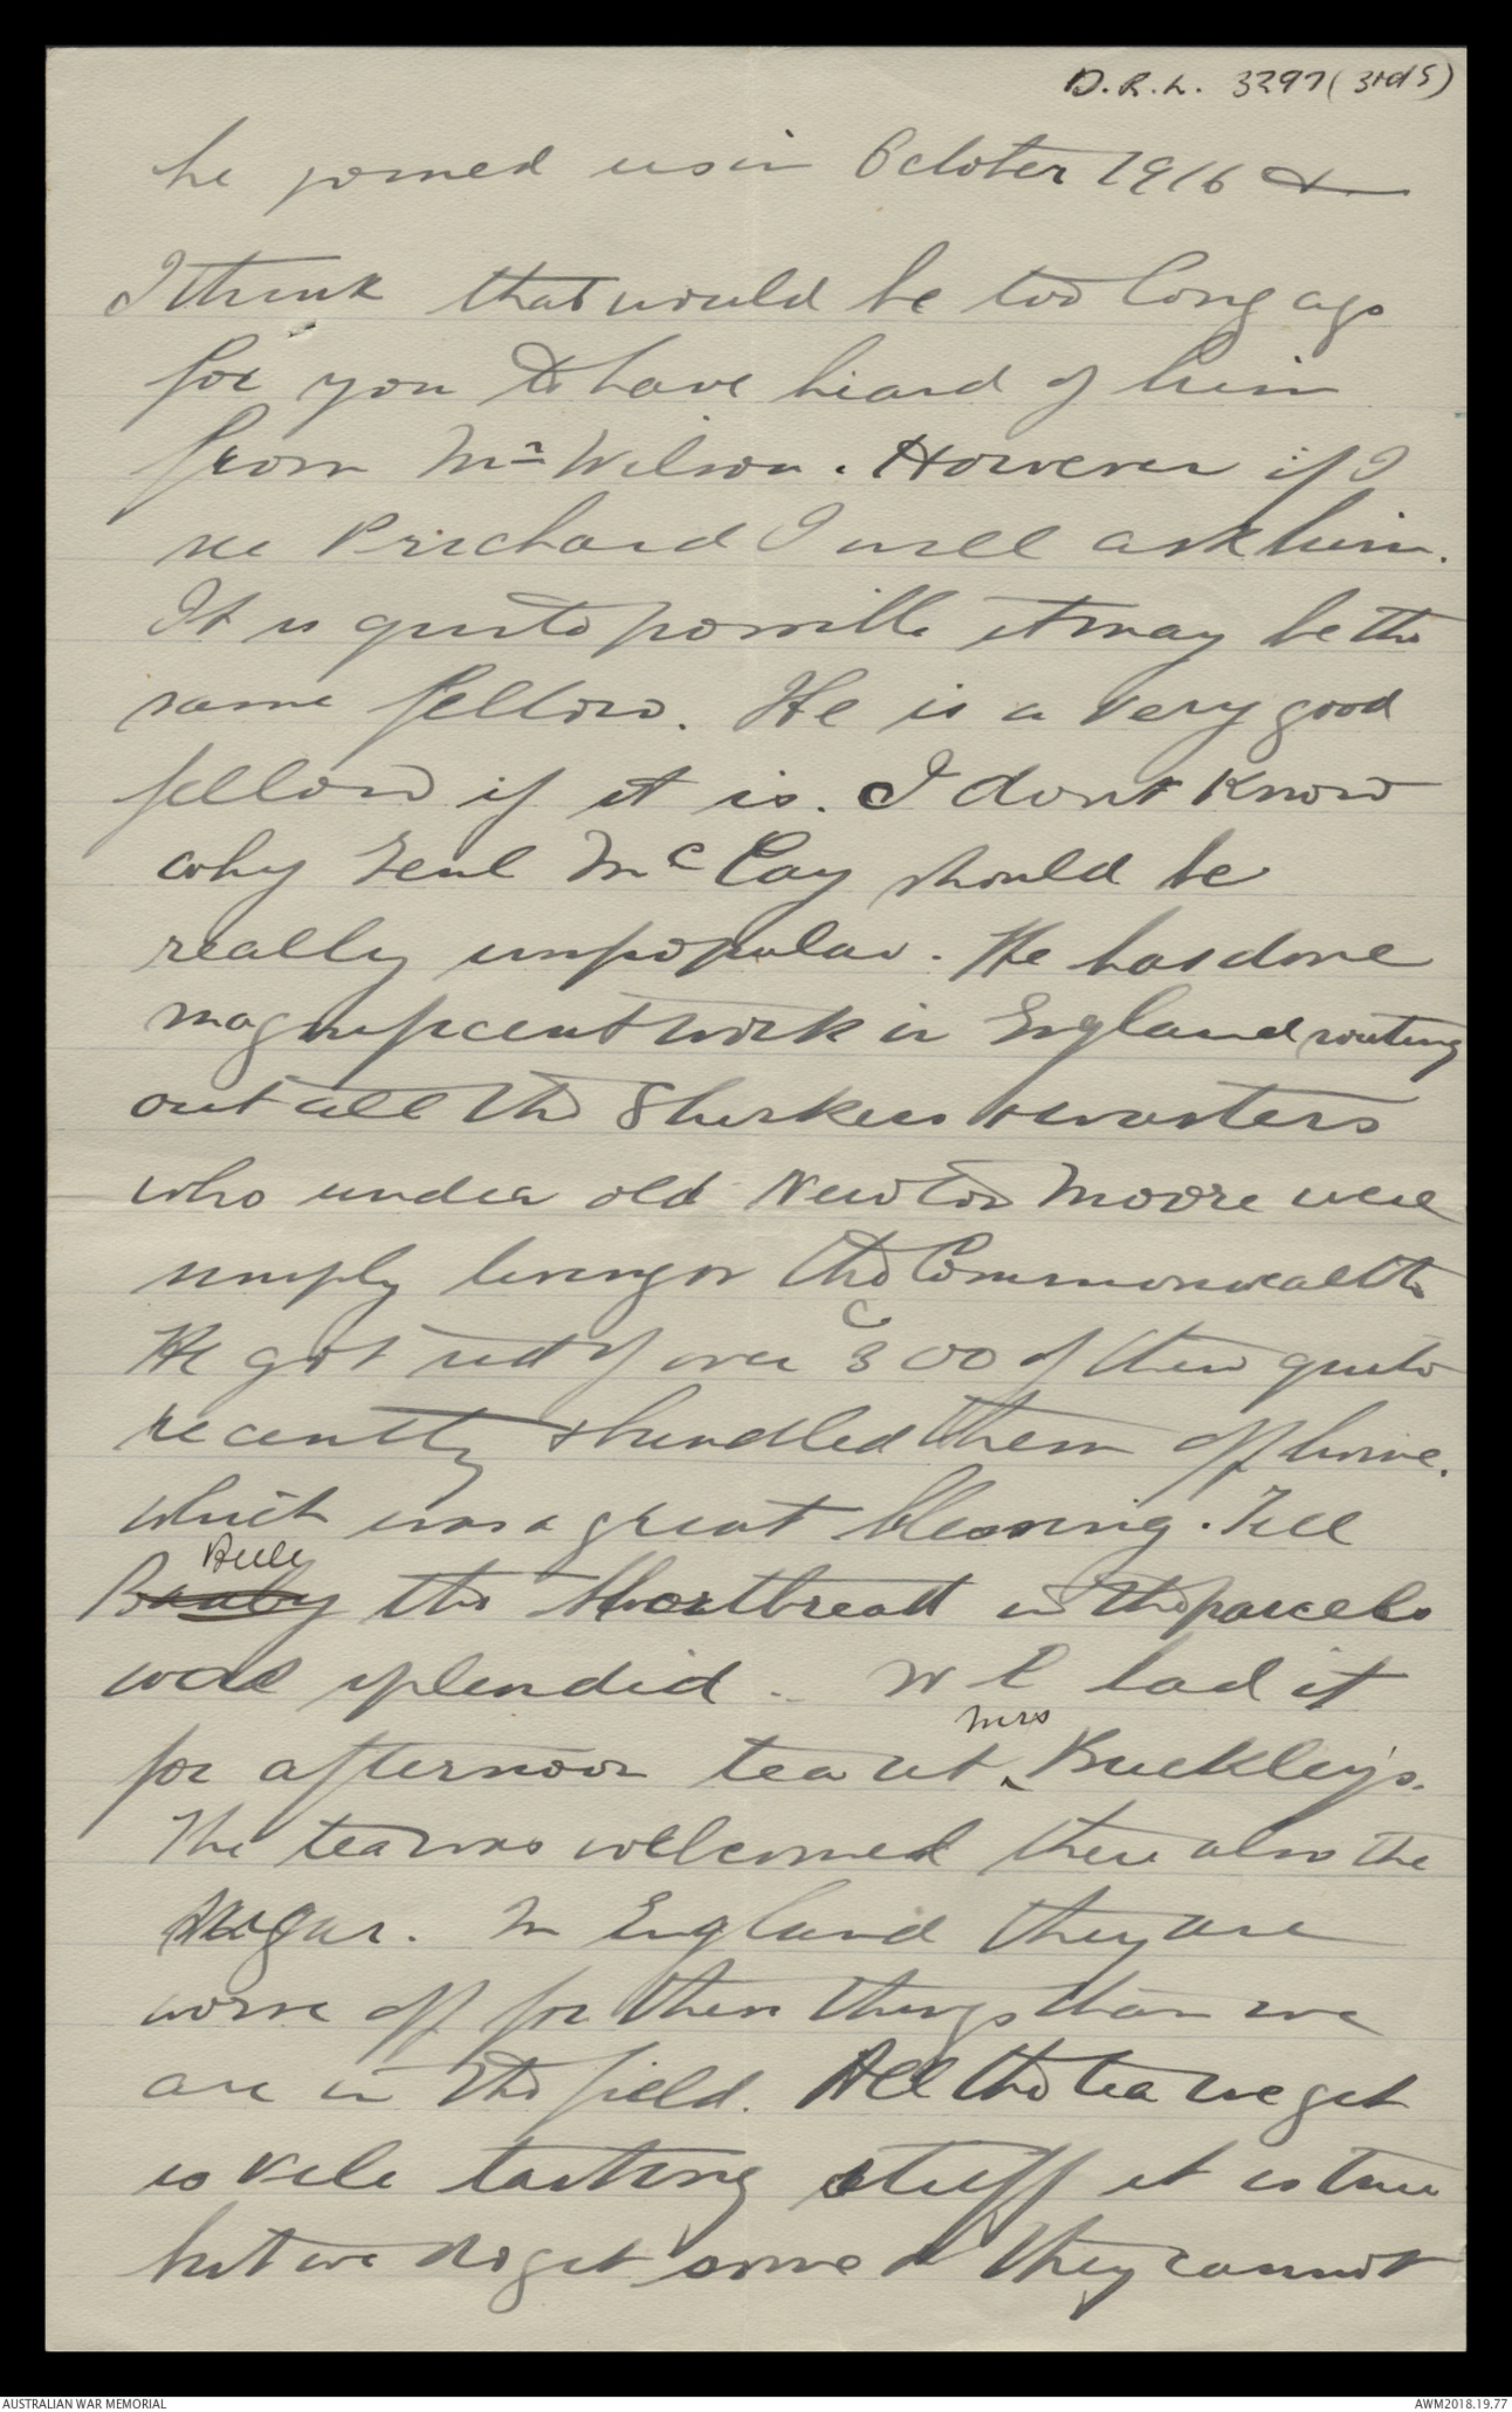 D.R.L. 3297 (3rd S)
he joined us in October 1916 &
I think that would be too long ago
for you to have heard of him
from Mr Wilson. However if I
see Prichard I will ask him.
It is quite possible it may be the
same fellow. He is a very good
fellow if it is. I don't know
why Genl McCay should be
really unpopular. He has done
magnificent work in England routing
out all the Shirkers & wasters
who under old Newton Moore were
simply living on the Commonwealth
He got rid of over 300 of them quite
recently & bundled them off home.
which was a great blessing. Tell
Billy
the Shortbread in the parcels
was splendid. We had it
for afternoon tea at Mrs Buckley's.
The tea was welcomed there also the
sugar. In England they are
worse off for these things than we
are in the field. All the tea we get
is vile tasting stuff it is true
but we do get some & they cannot
AUSTRALIAN WAR MEMORIAL
AWM2018.19.77